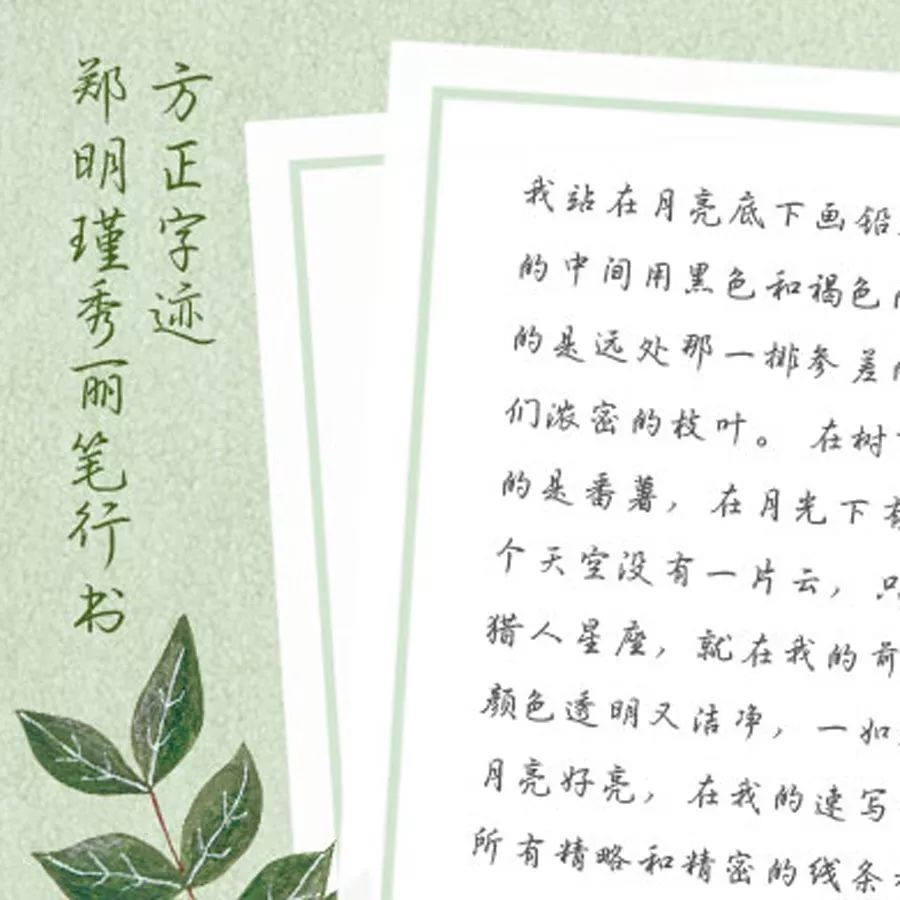 方正字迹
郑明瑾秀丽笔行书
我站在月亮底下画铅
的中间用黑色和褐色
的是远处那一排参差
们浓密的枝叶。 在树
的是番薯，在月光下
个天空没有一片云，只
猎人星座，就在我的前
颜色透明又洁净，一如
月亮好亮，在我的速写
所有精略和精密的线条